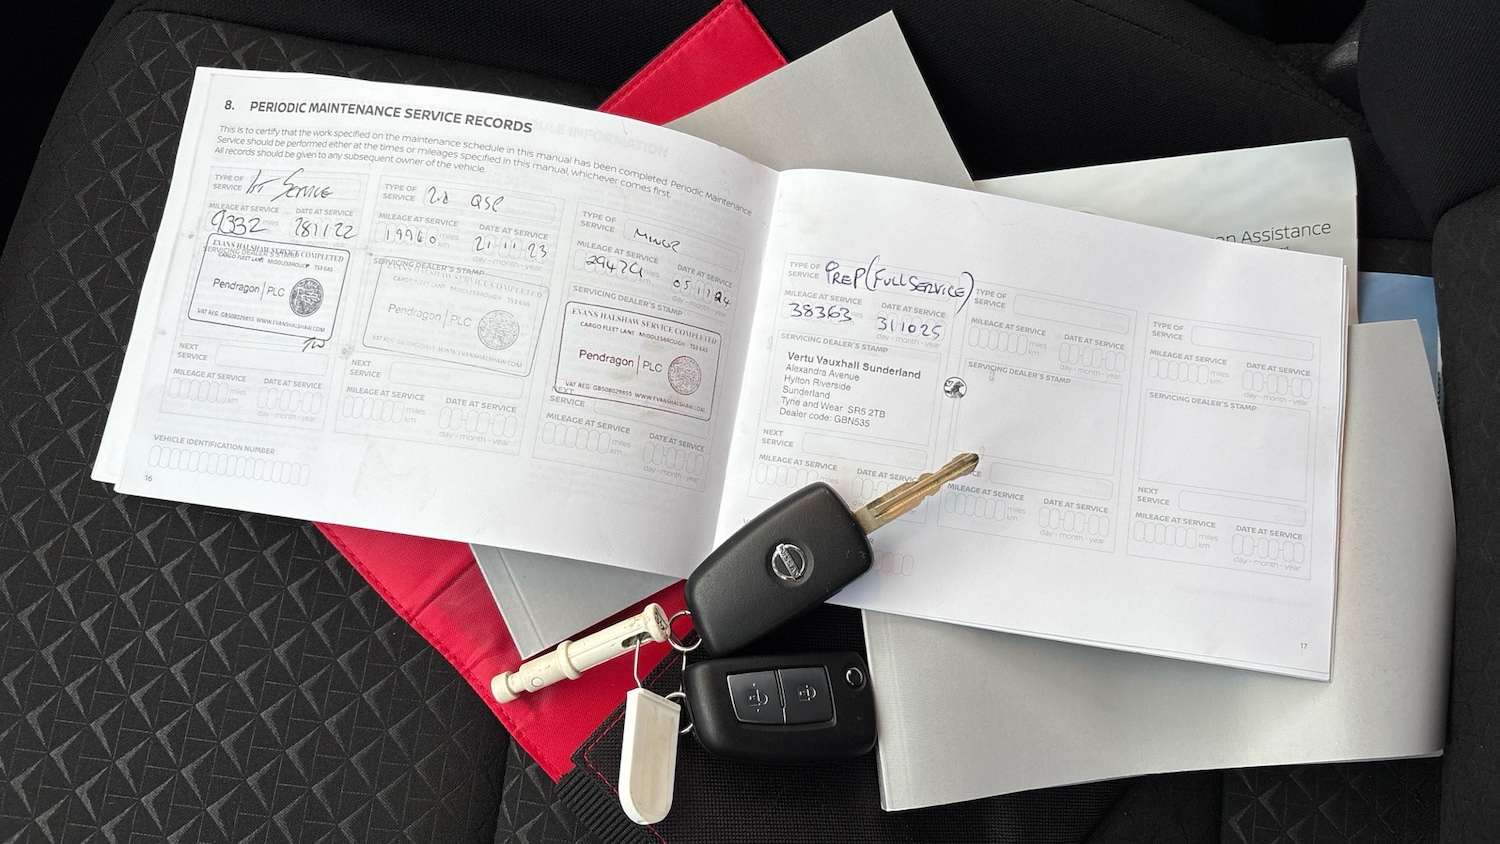 8. PERIODIC MAINTENANCE SERVICE RECORDS
This is to certify that the work specified on the maintenance schedule in this manual has been completed. Periodic Maintenance
Service should be performed either at the times or mileages specified in this manual, whichever comes first.
All records should be given to any subsequent owner of the vehicle.
TYPE OF SERVICE 1st SERVICE
MILEAGE AT SERVICE DATE AT SERVICE
9332 miles 281122
month - year
SERVICING DEALER'S STAMP
EVANS HALSHAW SERVICE COMPLETED
CARGO FLEET LANE MIDDLESBROUGH TS3 8AS
Pendragon PLC
VAT REG: GB508029855 WWW.EVANSHALSHAW.COM
NEXT SERVICE
MILEAGE AT SERVICE DATE AT SERVICE
miles
km day - month - year
VEHICLE IDENTIFICATION NUMBER
16
TYPE OF SERVICE 2nd QSP
MILEAGE AT SERVICE DATE AT SERVICE
19960 miles 21 11 23
km day - month - year
SERVICING DEALER'S STAMP
EVANS HALSHAW SERVICE COMPLETED
CARGO FLEET LANE MIDDLESBROUGH TS3 8AS
Pendragon PLC
VAT REG: GB508029855 WWW.EVANSHALSHAW.COM
NEXT SERVICE
MILEAGE AT SERVICE DATE AT SERVICE
miles
km day - month - year
TYPE OF SERVICE MINOR
MILEAGE AT SERVICE DATE AT SERVICE
miles 051124
km day - month - year
SERVICING DEALER'S STAMP
EVANS HALSHAW SERVICE COMPLETED
CARGO FLEET LANE MIDDLESBROUGH TS3 8AS
Pendragon PLC
VAT REG: GB508029855 WWW.EVANSHALSHAW.COM
NEXT SERVICE
MILEAGE AT SERVICE DATE AT SERVICE
miles
km day - month - year
TYPE OF SERVICE PREP (FULL SERVICE)
MILEAGE AT SERVICE DATE AT SERVICE
38363 miles 311025
km day - month - year
SERVICING DEALER'S STAMP
Vertu Vauxhall Sunderland
Alexandra Avenue
Hylton Riverside
Sunderland
Tyne and Wear SR5 2TB
Dealer code: GBN535
NEXT SERVICE
MILEAGE AT SERVICE DATE AT SERVICE
miles
km
TYPE OF SERVICE
MILEAGE AT SERVICE DATE AT SERVICE
miles
km day - month - year
SERVICING DEALER'S STAMP
MILEAGE AT SERVICE DATE AT SERVICE
miles
km day - month - year
TYPE OF SERVICE
MILEAGE AT SERVICE DATE AT SERVICE
miles
km day - month - year
SERVICING DEALER'S STAMP
NEXT SERVICE
MILEAGE AT SERVICE DATE AT SERVICE
miles
km day - month - year
17
Assistance
NISSAN